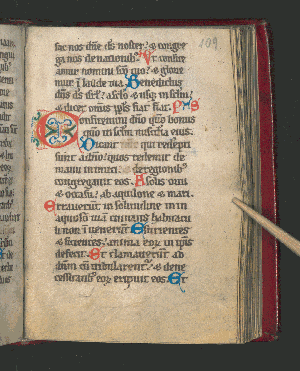 109.
fac nos dn̄e ds̄ noster ⁊ congre
ga nos de nationib; Ut confite
amur nomini scō tuo ⁊ glorie
mur ī laude tua Benedictus
dn̄s ds̄ isrl̄ a sclō ⁊ usq; in sclm̄
⁊ dicet omnis ppl̄s fiat fiat. PMS
Confitemini dn̄o qm̄ bonus
qm̄ in sclm̄ mīa eius.
Dicant qui redempti
sunt a dn̄o quos redemit de
manu inimici ⁊ de regionib;
congregauit eos A solis ortu
⁊ occasu ab aquilone ⁊ mari.
Errauerūt in solitudine in in
aquoso uiā ciuitatis habitacli
non inuenerūt Esurientes
⁊ sitientes anima eoꝝ in ipsis
defecit. Et clamauerūt ad
dn̄m cū tribularent̄ ⁊ de ne
cessitatib; eoꝝ eripuit eos Et